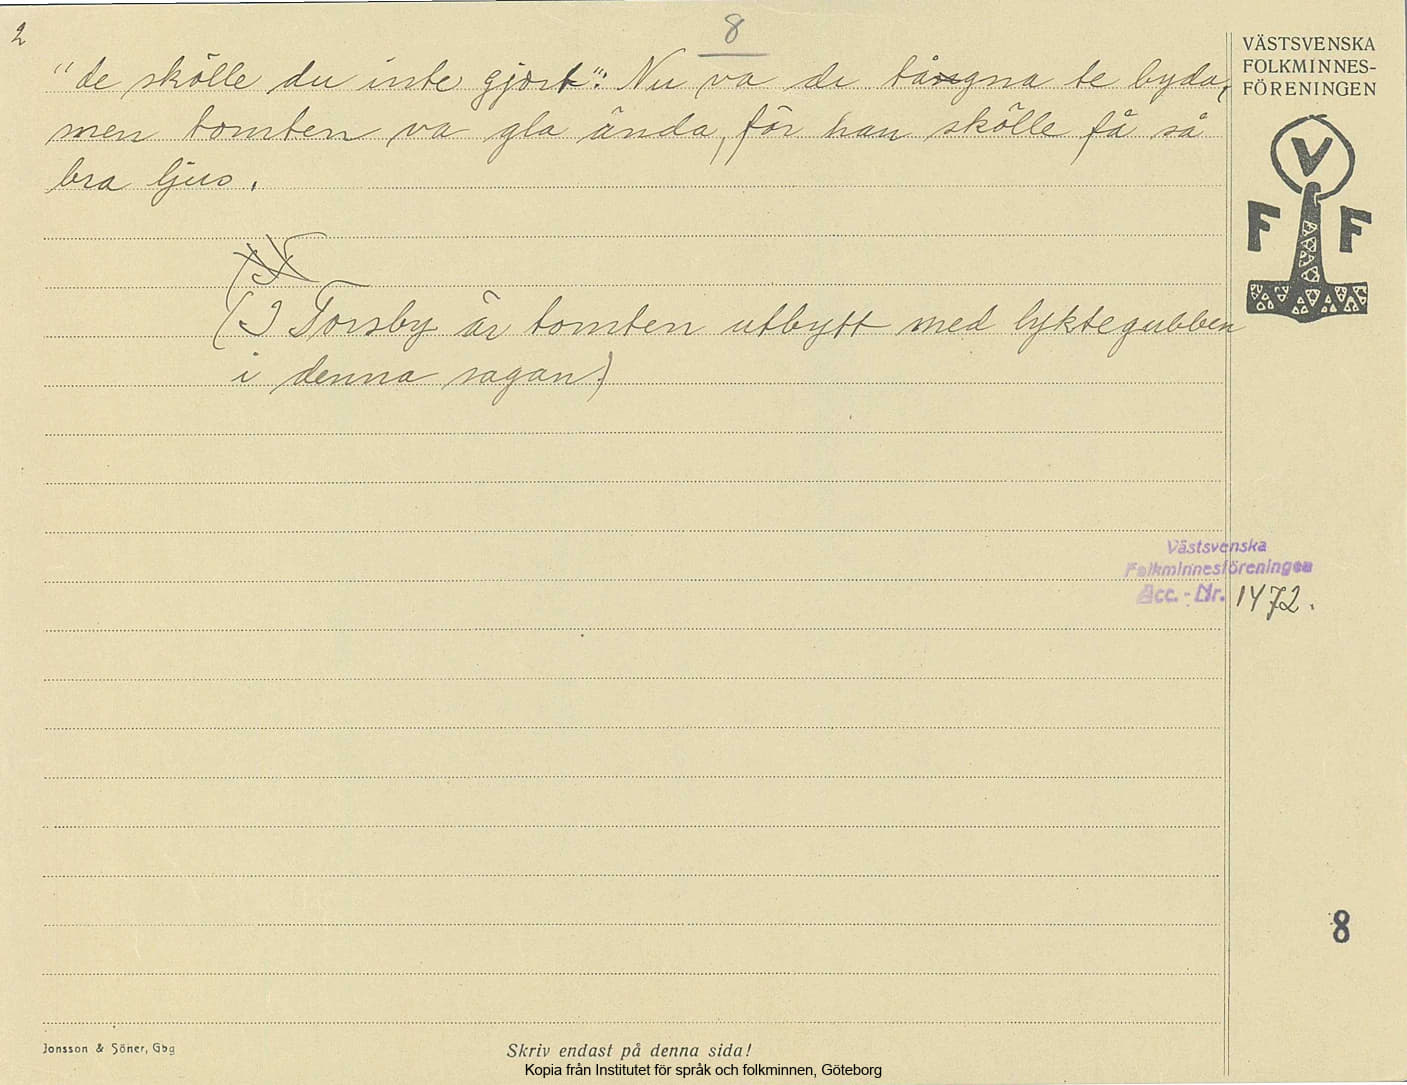 2
8
VÄSTSVENSKA
FOLKMINNES-
FÖRENINGEN
V
F F
"de skölle du inte gjort". Nu va de tågna te byda,
men tomten va gla ända, för han skölle få så
bra ljus.
(I Torsby är tomten utbytt med lyktegubben
i denna sagan.)
Västsvenska
Folkminnesföreningen
Acc.-Nr. 1472.
8
Jonsson & Söner, Gbg
Skriv endast på denna sida!
Kopia från Institutet för språk och folkminnen, Göteborg